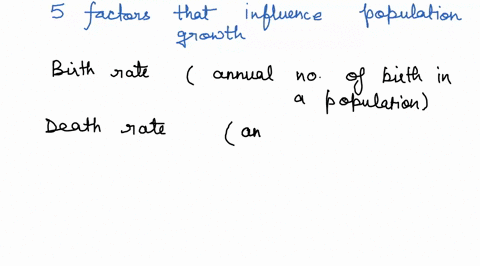 5 factors that influence population
growth
Birth rate ( annual no. of birth in
a population)
Death rate (an